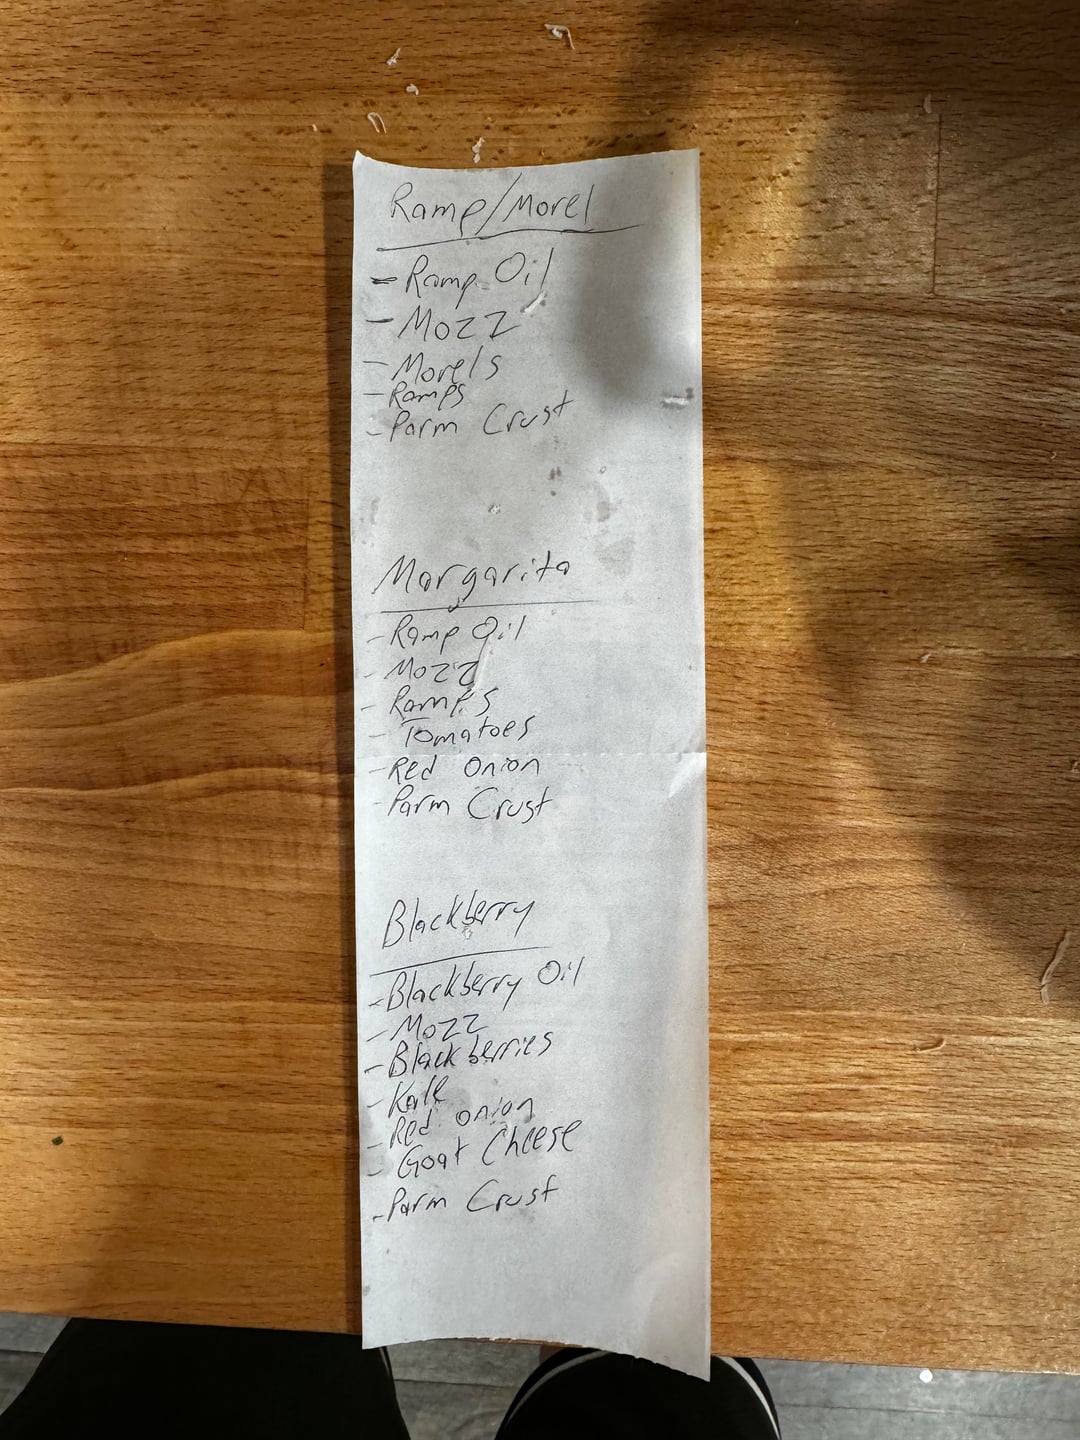 Ramp/Morel
- Ramp Oil
- Mozz
- Morels
- Ramps
- Parm Crust
Margarita
- Ramp Oil
- Mozz
- Ramps
- Tomatoes
- Red Onion
- Parm Crust
Blackberry
- Blackberry Oil
- Mozz
- Blackberries
- Kale
- Red onion
- Goat Cheese
- Parm Crust